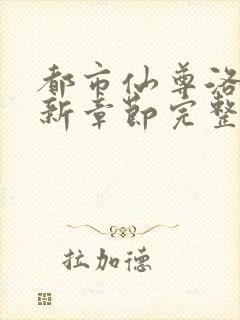 都市仙尊洛
新章節完整
拉加德